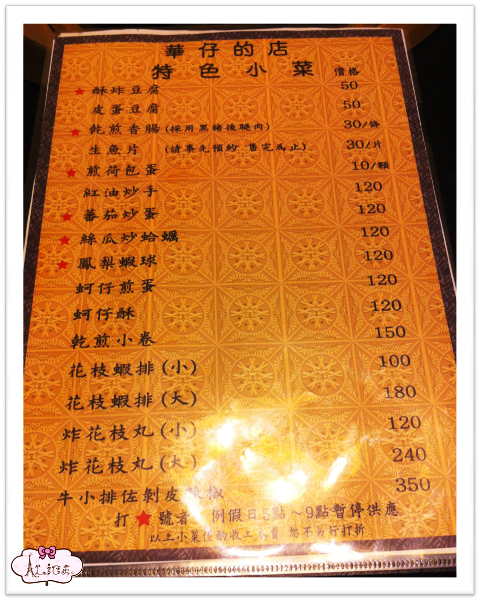 華仔的店
特色小菜 價格
★酥炸豆腐 50
皮蛋豆腐 50
★乾煎香腸(採用黑豬後腿肉) 30/條
生魚片 (請事先預約 售完為止) 30/片
★煎荷包蛋 10/顆
紅油炒手 120
★蕃茄炒蛋 120
★絲瓜炒蛤蠣 120
★鳳梨蝦球 120
蚵仔煎蛋 120
蚵仔酥 120
乾煎小卷 150
花枝蝦排(小) 100
花枝蝦排(大) 180
炸花枝丸(小) 120
炸花枝丸(大) 240
牛小排佐剝皮辣椒 350
打★號者 例假日5點～9點暫停供應
以上小菜僅酌收工本費 恕不另行打折